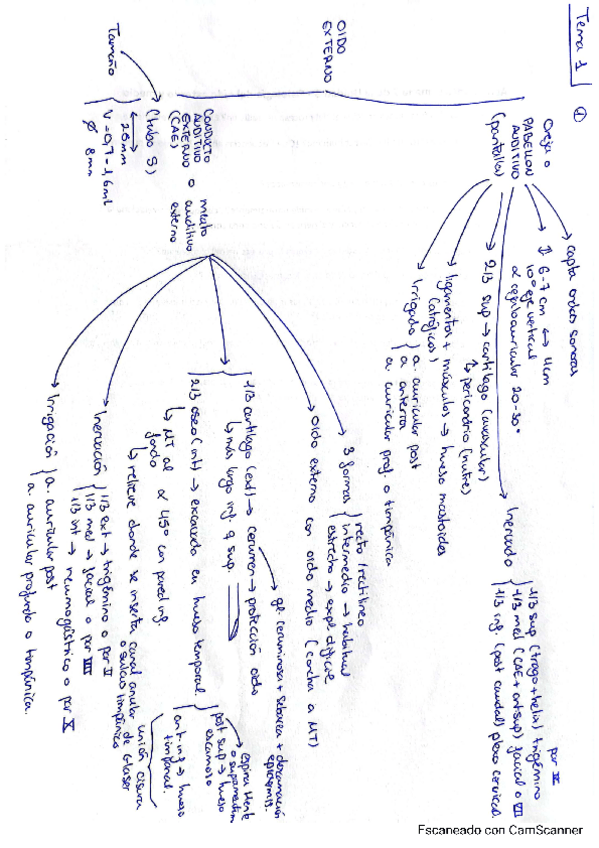 Tema 1
①
OIDO
EXTERNO
Oreja o
PABELLON
AUDITIVO
(pantalla)
→ capta ondas sonoras
→ ↕ 6-7 cm ↔ 4cm
10º eje vertical
∝ cefaloauricular 20-30º
→ Inervado
1/3 sup (trago+helix) trigémino
por V
1/3 med (CAE + antsup) facial o VII
1/3 inf. (post caudal) plexo cervical.
→ 2/3 sup → cartílago (avascular)
↳ pericondrio (nutre)
→ ligamentos + músculos → hueso mastoides
(atróficos)
→ Irrigado
a. auricular post
a. anterna
a. auricular prof. o timpánica
CONDUCTO
AUDITIVO
EXTERNO
(CAE)
o
meato
auditivo
externo
(tubo S)
Tamaño
↔ 25mm
V = 0,7 - 1,6ml
Ø 8mm
→ 3 formas
recto / rectilíneo
intermedio → habitual
estrecho → expl. difícil
→ Oido externo con oido medio (concha a MT)
→ 1/3 cartílago (ext) → cerumen → protección oido
gl. ceruminosa + sebácea + descamación
epidermis.
↳ más largo inf. q sup.
2/3 oseo (int) → excavado en hueso temporal
↳ MT al ∝ 45º con pared inf.
fondo
↳ relieve donde se inserta canal anular
o sulcus timpánico
unión cisura
de Glaser
post sup → hueso
escamoso
ant inf → hueso
timpanal.
→ Inervación
1/3 ext → trigémino o par V
1/3 med → facial o par VII
1/3 int → neumogástrico o par X
→ Irrigación
a. auricular post
a. auricular profunda o timpánica.
Escaneado con CamScanner